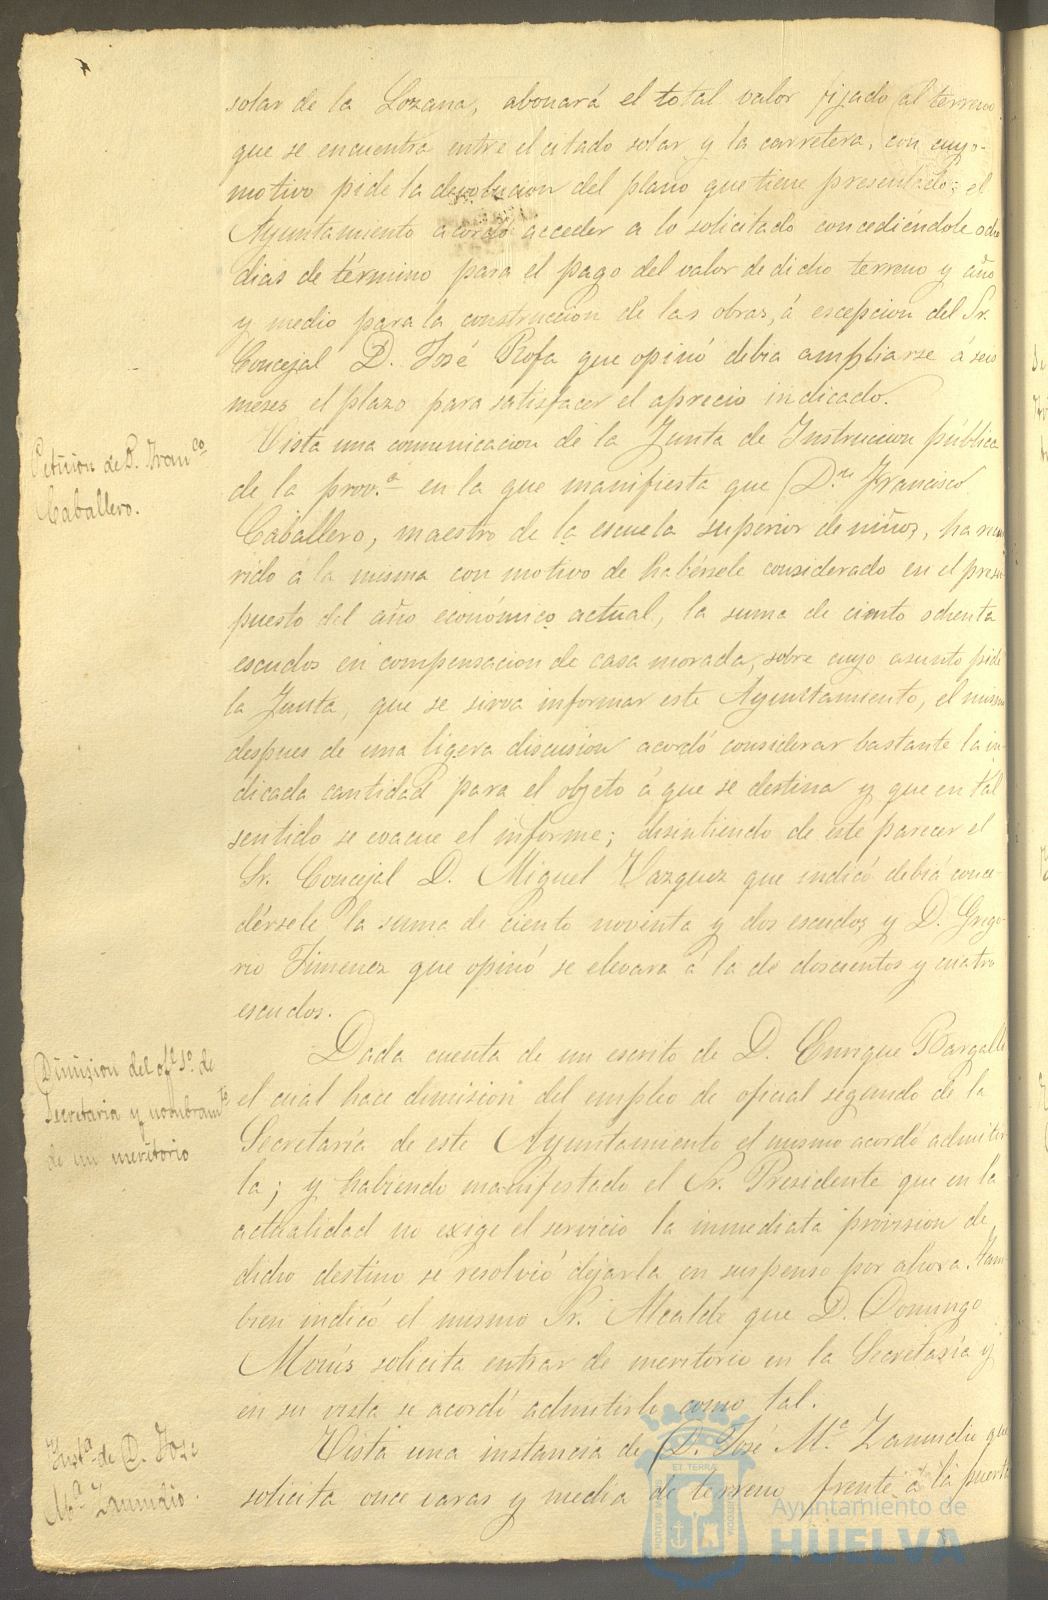 solar de la Lozana, abonará el total valor fijado al terreno
que se encuentra entre el citado solar y la carretera, con cuyo
motivo pide la devolucion del plano que tiene presentado; el
Ayuntamiento acordó acceder a lo solicitado concediéndole ocho
dias de término para el pago del valor de dicho terreno y año
y medio para la construcción de las obras, á escepcion del Sr.
Concejal D. José Rofa que opinó debia ampliarse á seis
meses el plazo para satisfacer el aprecio indicado.
Peticion de D. Fran.co
Caballero.
Vista una comunicacion de la Junta de Instruccion pública
de la prov.a en la que manifiesta que D.n Francisco
Caballero, maestro de la escuela superior de niños, ha recur
rido á la misma con motivo de habérsele considerado en el presu
puesto del año económico actual, la suma de ciento ochenta
escudos en compensacion de casa morada, sobre cuyo asunto pide
la Junta, que se sirva informar este Ayuntamiento, el mismo
despues de una ligera discusion acordó considerar bastante la in
dicada cantidad para el objeto á que se destina y que en tal
sentido se evacue el informe; disintiendo de este parecer el
Sr. Concejal D. Miguel Vazquez que indicó debiá conce-
dérsele la suma de ciento noventa y dos escudos y D. Grego-
rio Jimenez que opinó se elevara á la de doscientos y cuatro
escudos.
Dimision del of.l 2.o de
Secretaria y nombram.to
de un meritorio
Dada cuenta de un escrito de D. Enrique Bargalló
el cual hace dimision del empleo de oficial segundo de la
Secretaría de este Ayuntamiento el mismo acordó admitir
la; y habiendo manifestado el Sr. Presidente que en la
actualidad no exige el servicio la inmediata provision de
dicho destino se resolvió dejarla en suspenso por ahora. Tam
bien indicó el mismo Sr. Alcalde que D. Domingo
Monís solicita entrar de meritorio en la Secretaría y
en su vista se acordó admitirle como tal.
Inst.a de D. José
M.a Zamudio.
Vista una instancia de D. José M.a Zamudio que
solicita once varas y media de terreno frente á la puerta
ET TERRAE
Ayuntamiento de
HUELVA